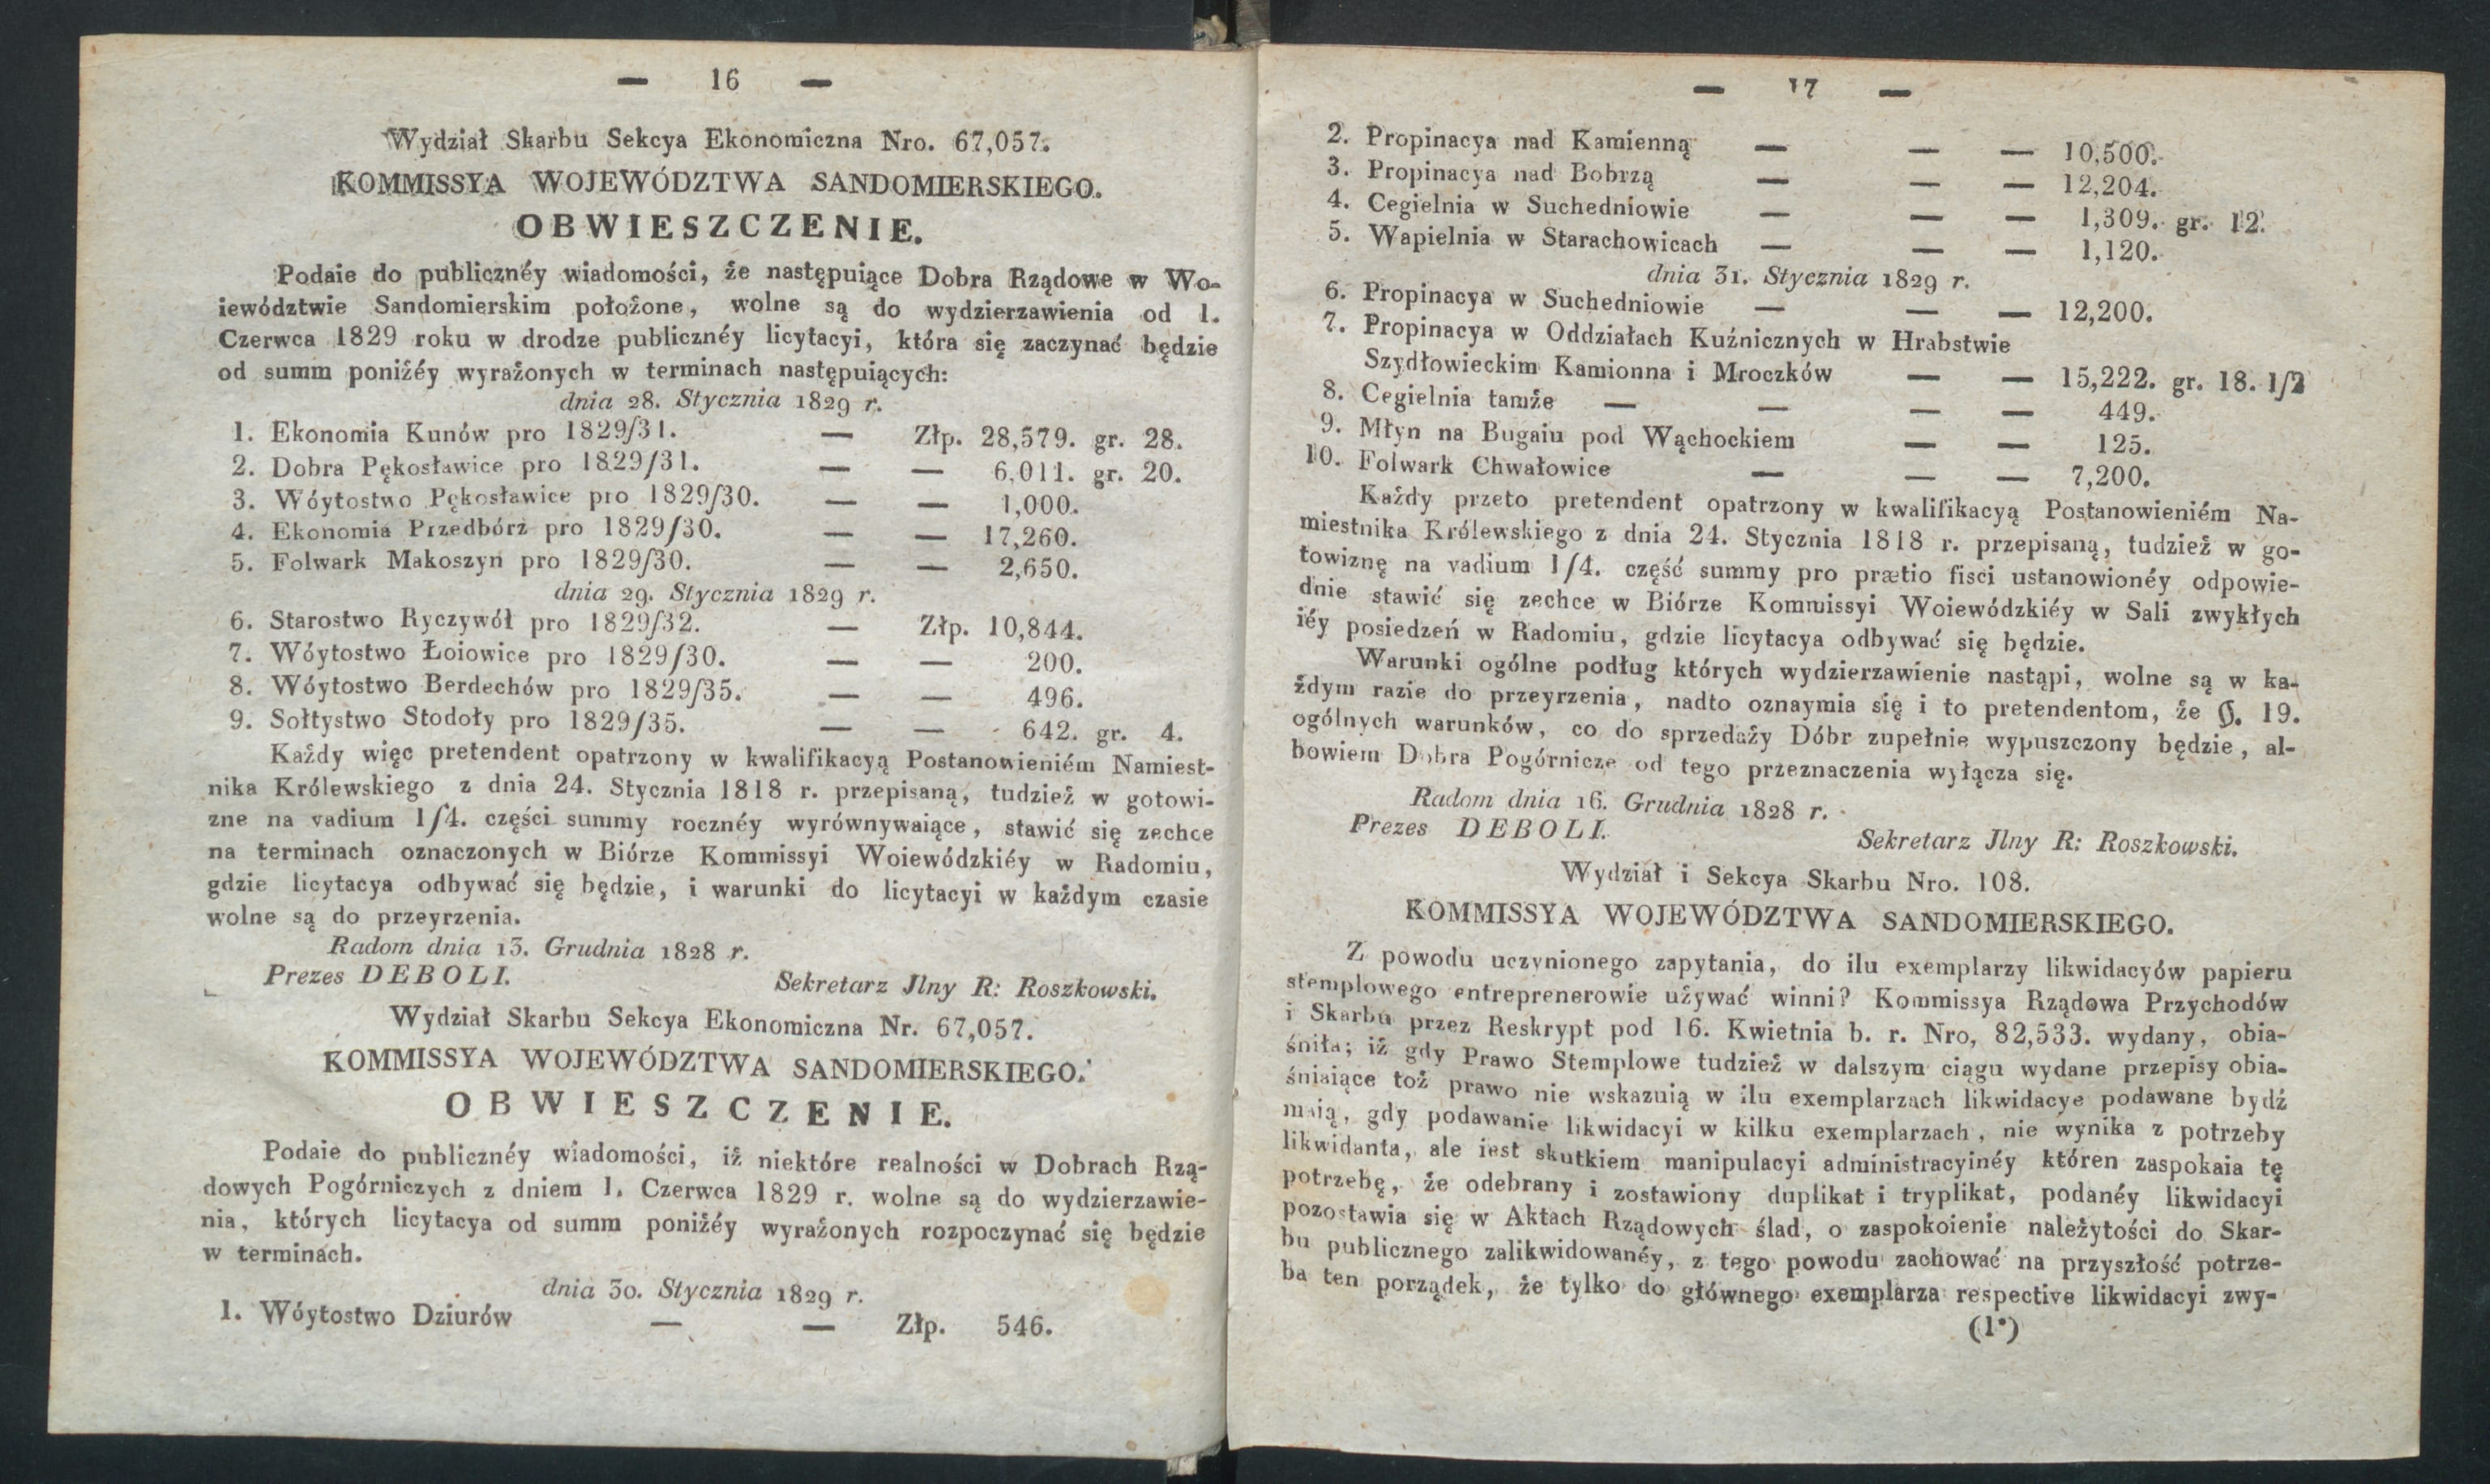 — 16 —
Wydział Skarbu Sekcya Ekonomiczna Nro. 67,057.
KOMMISSYA WOJEWÓDZTWA SANDOMIERSKIEGO.
OBWIESZCZENIE.
Podaie do publicznéy wiadomości, że następuiące Dobra Rządowe w Wo-
iewództwie Sandomierskim położone, wolne są do wydzierzawienia od 1.
Czerwca 1829 roku w drodze publicznéy licytacyi, która się zaczynać będzie
od summ poniżéy wyrażonych w terminach następuiących:
dnia 28. Stycznia 1829 r.
1. Ekonomia Kunów pro 1829/31. — Złp. 28,579. gr. 28.
2. Dobra Pękosławice pro 1829/31. — — 6,011. gr. 20.
3. Wóytostwo Pękosławice pro 1829/30. — — 1,000.
4. Ekonomia Przedbórz pro 1829/30. — — 17,260.
5. Folwark Makoszyn pro 1829/30. — — 2,650.
dnia 29. Stycznia 1829 r.
6. Starostwo Ryczywół pro 1829/32. — Złp. 10,844.
7. Wóytostwo Łoiowice pro 1829/30. — — 200.
8. Wóytostwo Berdechów pro 1829/35. — — 496.
9. Sołtystwo Stodoły pro 1829/35. — — 642. gr. 4.
Każdy więc pretendent opatrzony w kwalifikacyą Postanowieniém Namiest-
nika Królewskiego z dnia 24. Stycznia 1818 r. przepisaną, tudzież w gotowi-
zne na vadium 1/4. części summy rocznéy wyrównywaiące, stawić się zechce
na terminach oznaczonych w Biórze Kommissyi Woiewódzkiéy w Radomiu,
gdzie licytacya odbywać się będzie, i warunki do licytacyi w każdym czasie
wolne są do przeyrzenia.
Radom dnia 13. Grudnia 1828 r.
Prezes DEBOLI.
Sekretarz Jlny R: Roszkowski.
Wydział Skarbu Sekcya Ekonomiczna Nr. 67,057.
KOMMISSYA WOJEWÓDZTWA SANDOMIERSKIEGO.
OBWIESZCZENIE.
Podaie do publicznéy wiadomości, iż niektóre realności w Dobrach Rzą-
dowych Pogórniczych z dniem 1. Czerwca 1829 r. wolne są do wydzierzawie-
nia, których licytacya od summ poniżéy wyrażonych rozpoczynać się będzie
w terminach.
dnia 30. Stycznia 1829 r.
1. Wóytostwo Dziurów — — Złp. 546.
— 17 —
2. Propinacya nad Kamienną — — — 10,500.
3. Propinacya nad Bobrzą — — — 12,204.
4. Cegielnia w Suchedniowie — — — 1,309. gr. 12.
5. Wapielnia w Starachowicach — — — 1,120.
dnia 31. Stycznia 1829 r.
6. Propinacya w Suchedniowie — — — 12,200.
7. Propinacya w Oddziałach Kuźnicznych w Hrabstwie
Szydłowieckim Kamionna i Mroczków — — 15,222. gr. 18. 1/2
8. Cegielnia tamże — — — — 449.
9. Młyn na Bugaiu pod Wąchockiem — — 125.
10. Folwark Chwałowice — — — 7,200.
Każdy przeto pretendent opatrzony w kwalifikacyą Postanowieniém Na-
miestnika Królewskiego z dnia 24. Stycznia 1818 r. przepisaną, tudzież w go-
towiznę na vadium 1/4. część summy pro prætio fisci ustanowionéy odpowie-
dnie stawić się zechce w Biórze Kommissyi Woiewódzkiéy w Sali zwykłych
iéy posiedzeń w Radomiu, gdzie licytacya odbywać się będzie.
Warunki ogólne podług których wydzierzawienie nastąpi, wolne są w ka-
żdym razie do przeyrzenia, nadto oznaymia się i to pretendentom, że §. 19.
ogólnych warunków, co do sprzedaży Dóbr zupełnie wypuszczony będzie, al-
bowiem Dobra Pogórnicze od tego przeznaczenia wyłącza się.
Radom dnia 16. Grudnia 1828 r.
Prezes DEBOLI.
Sekretarz Jlny R: Roszkowski.
Wydział i Sekcya Skarbu Nro. 108.
KOMMISSYA WOJEWÓDZTWA SANDOMIERSKIEGO.
Z powodu uczynionego zapytania, do ilu exemplarzy likwidacyów papieru
stemplowego entreprenerowie używać winni? Kommissya Rządowa Przychodów
i Skarbu przez Reskrypt pod 16. Kwietnia b. r. Nro, 82,533. wydany, obia-
śniła; iż gdy Prawo Stemplowe tudzież w dalszym ciągu wydane przepisy obia-
śniaiące toż prawo nie wskazuią w ilu exemplarzach likwidacye podawane bydź
maią, gdy podawanie likwidacyi w kilku exemplarzach, nie wynika z potrzeby
likwidanta, ale iest skutkiem manipulacyi administracyinéy któren zaspokaia tę
potrzebę, że odebrany i zostawiony duplikat i tryplikat, podanéy likwidacyi
pozostawia się w Aktach Rządowych ślad, o zaspokoienie należytości do Skar-
bu publicznego zalikwidowanéy, z tego powodu zachować na przyszłość potrze-
ba ten porządek, że tylko do głównego exemplarza respective likwidacyi zwy-
(1*)